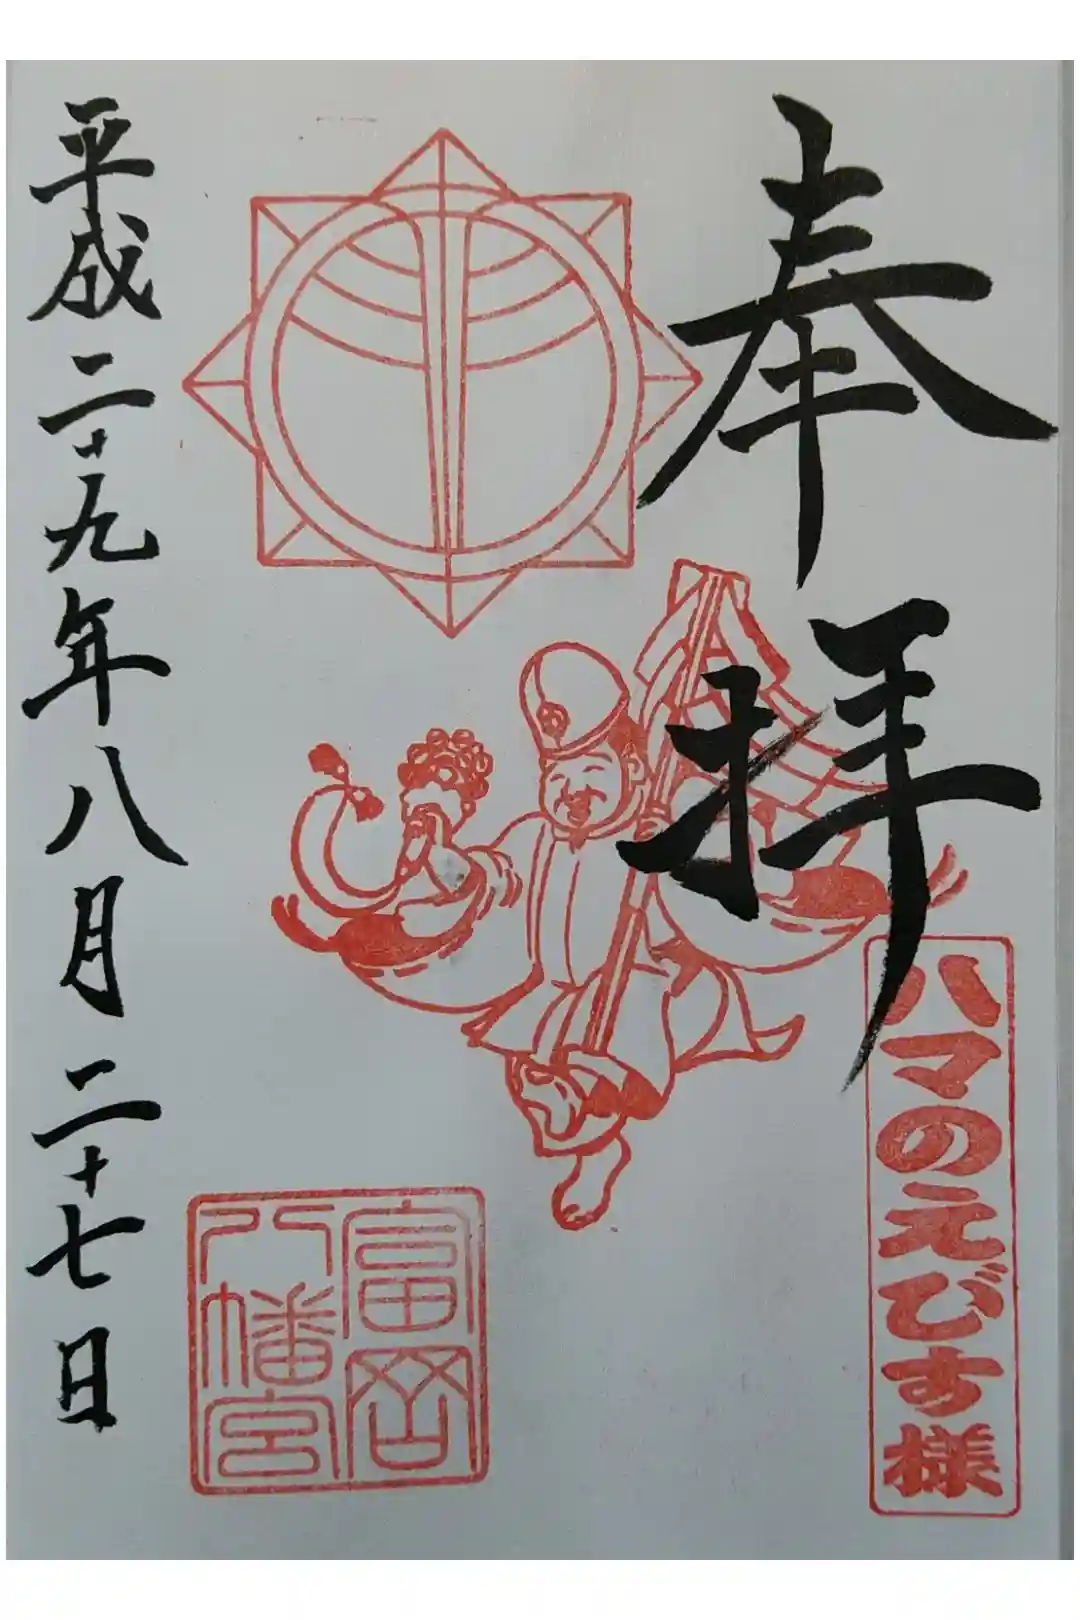 奉拝
ハマのえびす様
富岡
八幡宮
平成二十九年八月二十七日